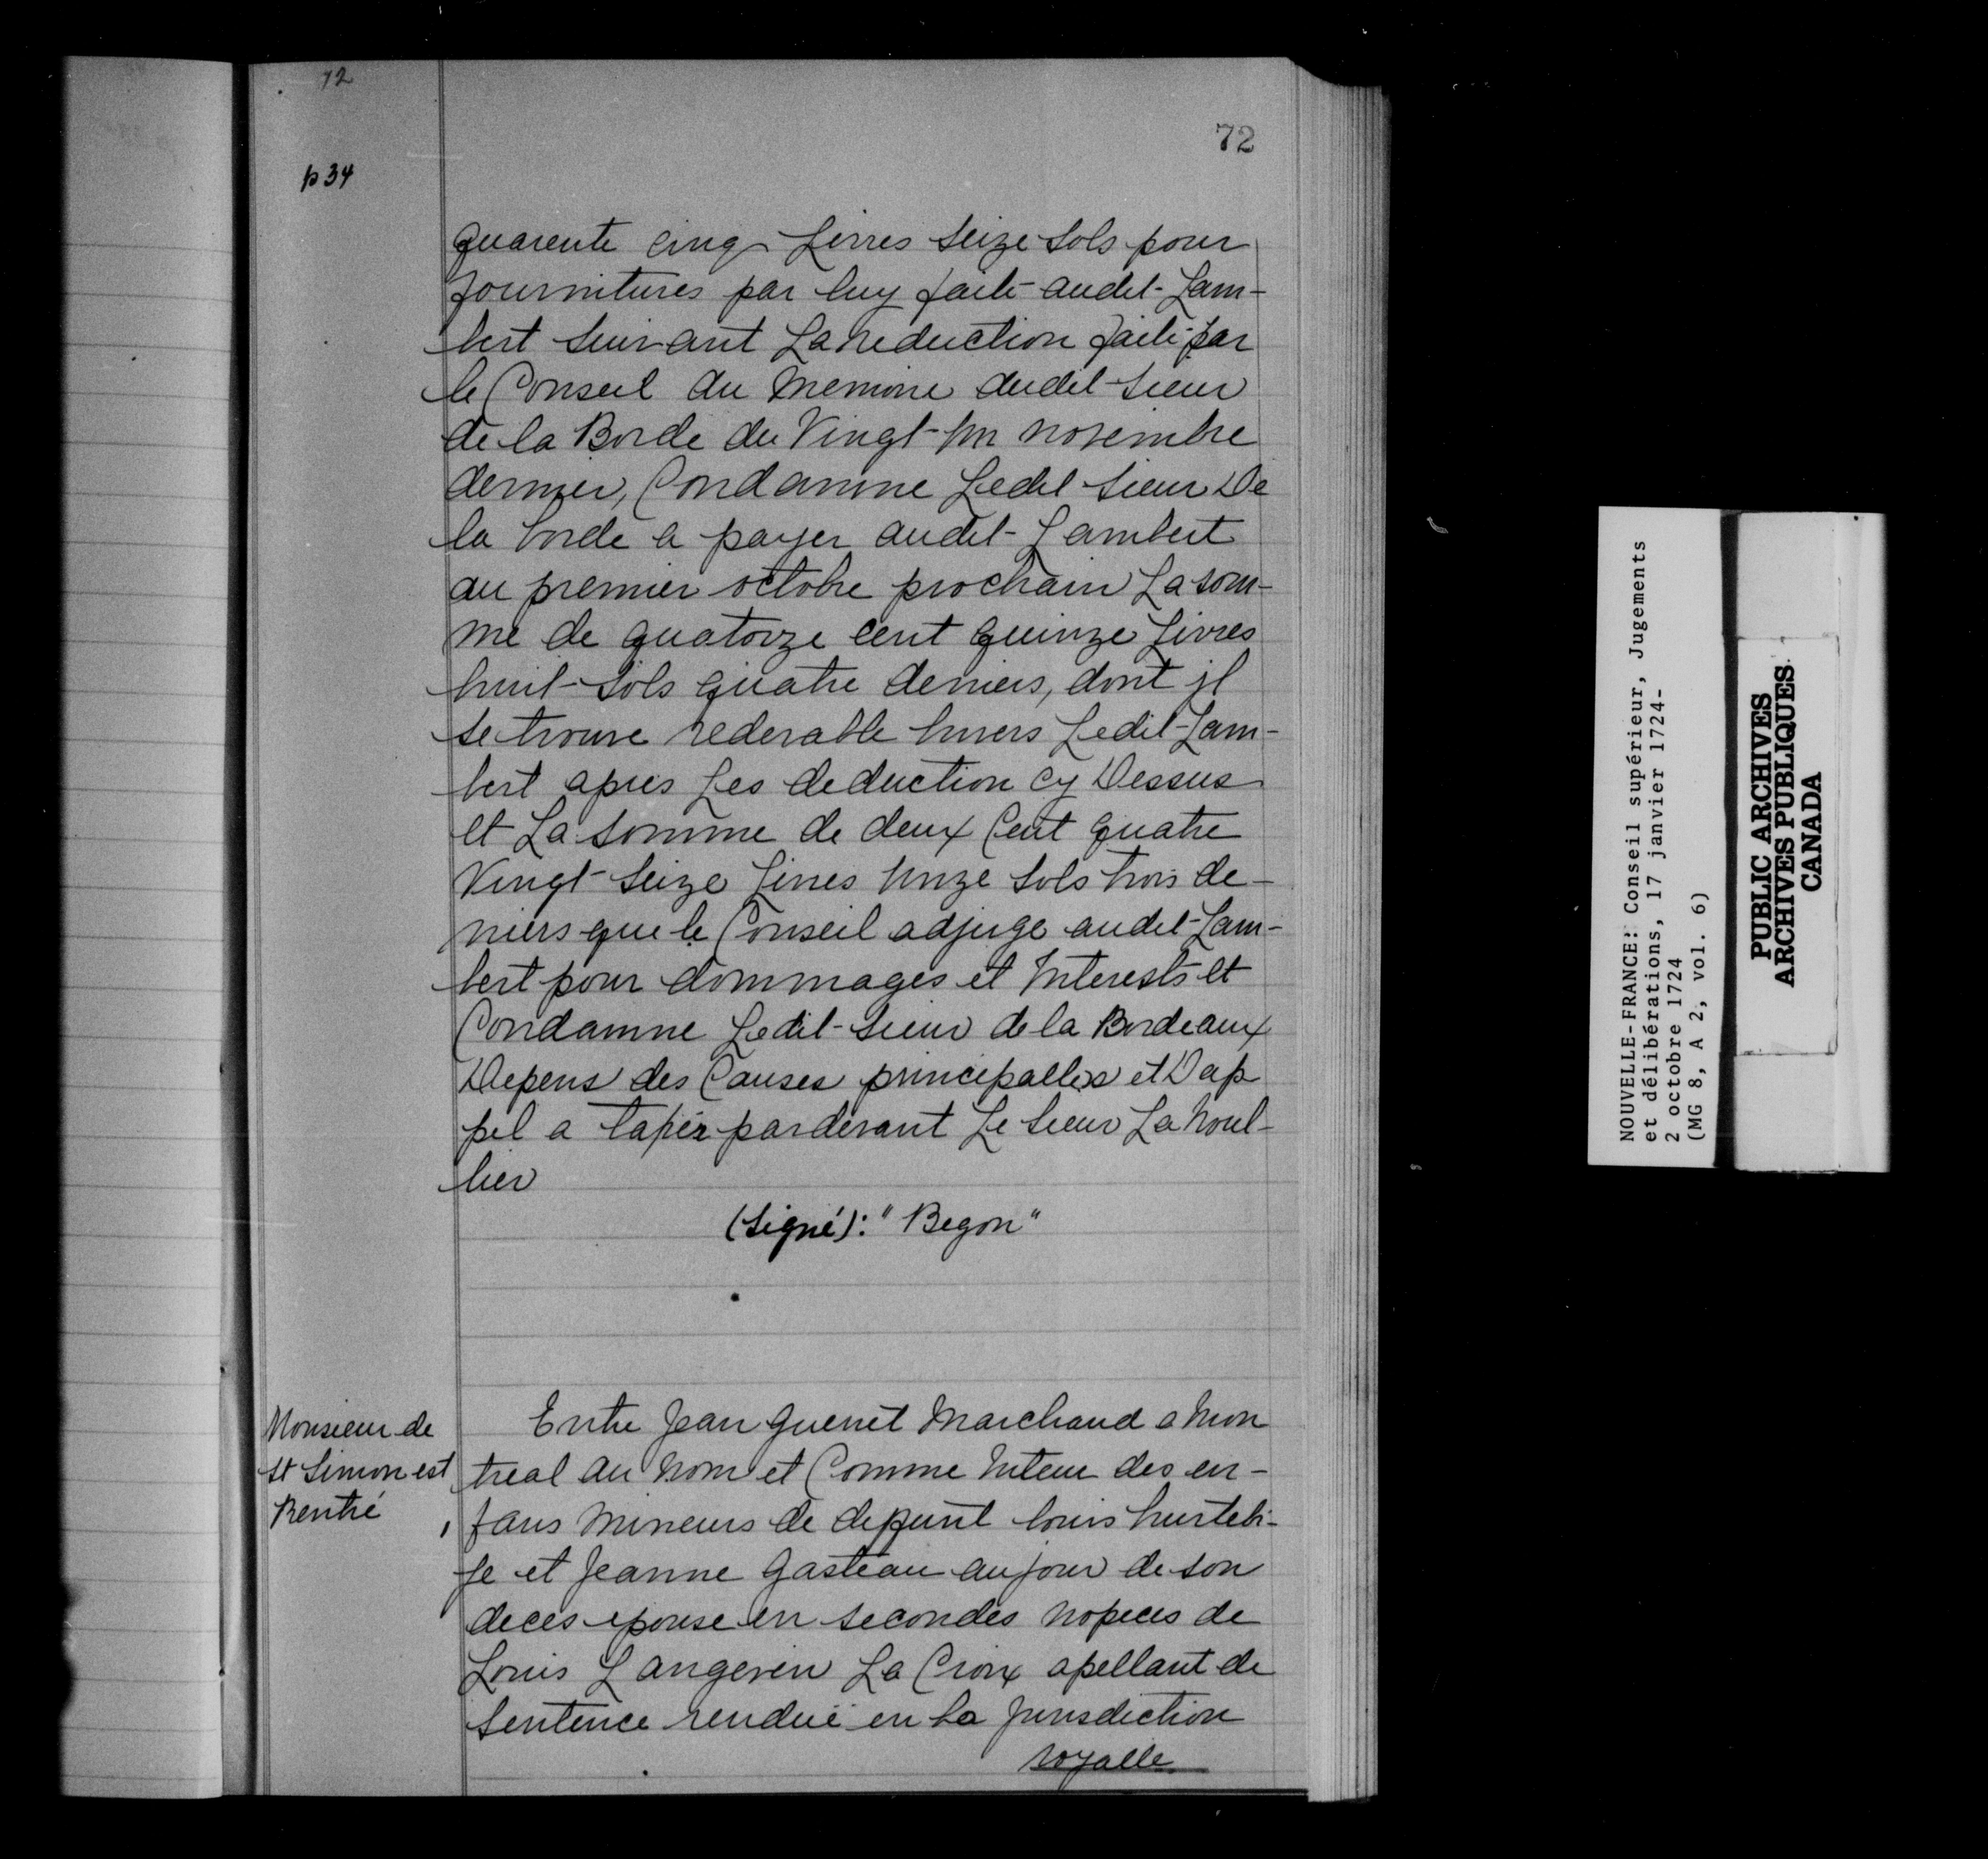 72
72
p 34
quarente cinq Livres seize sols pour
fournitures par luy faite audit Lam-
bert suivant La reduction faite par
le Conseil du memoire dudit sieur
de la Borde du Vingt un novembre
dernier, Condamne Ledit sieur De
la borde a payer audit Lambert
au premier octobre prochain La som-
me de quatorze cent quinze Livres
huit sols quatre deniers, dont il
se trouve redevable Envers Ledit Lam-
bert apres Les deduction cy Dessus
et La somme de deux Cent quatre
Vingt seize Livres Unze sols trois de-
niers que le Conseil adjuge audit Lam-
bert pour dommages et Interests et
Condamne Ledit sieur de la Bordeaux
Depens des Causes principalles et Dap
pel a taper pardevant Le sieur La noul-
lier
(Signé): "Begon"
Monsieur de
St Simon est
Rentré
Entre Jean quenet Marchand a Mon
treal au nom et Comme tuteur des en-
fans mineurs de defunt louis hurtebi-
se et Jeanne Gasteau au jour de son
deces epouse en secondes nopces de
Louis Langevin La Croix apellant de
Sentence renduë en la Jurisdiction
royalle
NOUVELLE-FRANCE: Conseil supérieur, Jugements
et délibérations, 17 janvier 1724-
2 octobre 1724
(MG 8, A 2, vol. 6)
PUBLIC ARCHIVES
ARCHIVES PUBLIQUES
CANADA